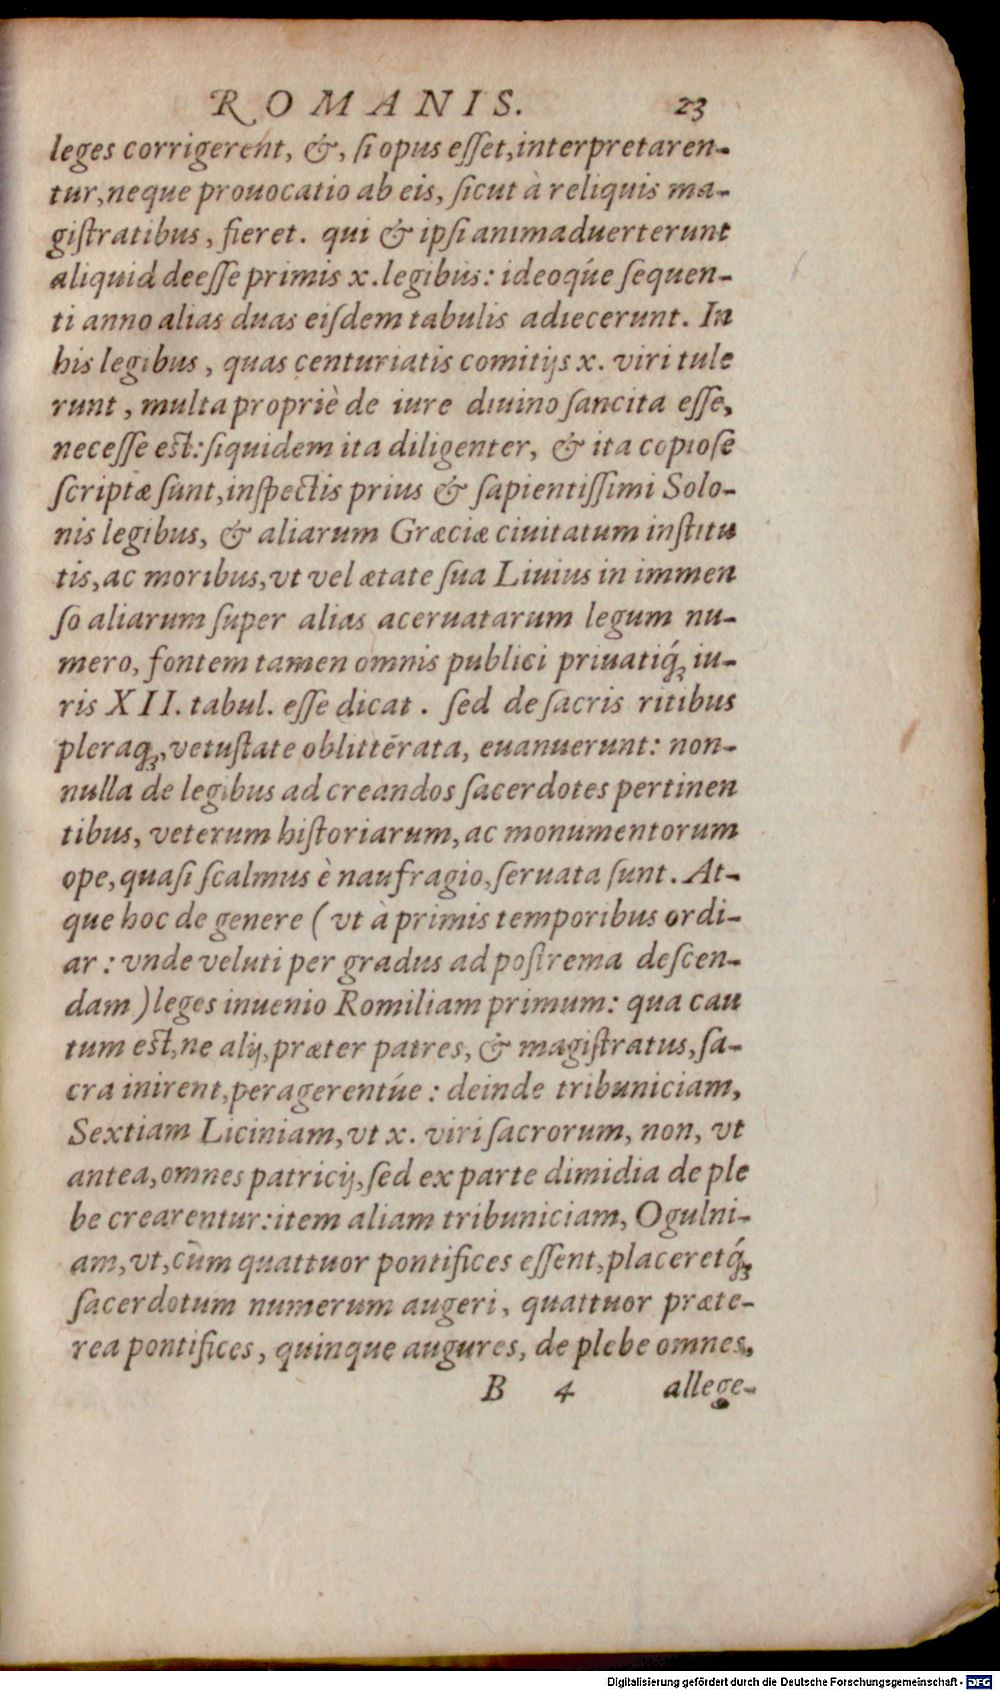 ROMANIS. 23
leges corrigerent, &, ſi opus eſſet, interpretaren-
tur, neque prouocatio ab eis, ſicut à reliquis ma-
giſtratibus, fieret. qui & ipſi animaduerterunt
aliquid deeſſe primis x. legibus: ideoq́ue ſequen-
ti anno alias duas eiſdem tabulis adiecerunt. In
his legibus, quas centuriatis comitijs x. viri tule
runt, multa propriè de iure diuino ſancita eſſe,
neceſſe eſt: ſiquidem ita diligenter, & ita copioſe
ſcriptæ ſunt, inſpectis prius & ſapientiſſimi Solo-
nis legibus, & aliarum Græciæ ciuitatum inſtitu
tis, ac moribus, vt vel ætate ſua Liuius in immen
ſo aliarum ſuper alias aceruatarum legum nu-
mero, fontem tamen omnis publici priuatiq́; iu-
ris XII. tabul. eſſe dicat. ſed de ſacris ritibus
pleraq;, vetuſtate oblittērata, euanuerunt: non-
nulla de legibus ad creandos ſacerdotes pertinen
tibus, veterum hiſtoriarum, ac monumentorum
ope, quaſi ſcalmus è naufragio, ſeruata ſunt. At-
que hoc de genere (vt à primis temporibus ordi-
ar: vnde veluti per gradus ad poſtrema deſcen-
dam) leges inuenio Romiliam primum: qua cau
tum eſt, ne alij, præter patres, & magiſtratus, ſa-
cra inirent, peragerentúe: deinde tribuniciam,
Sextiam Liciniam, vt x. viri ſacrorum, non, vt
antea, omnes patricij, ſed ex parte dimidia de ple
be crearentur: item aliam tribuniciam, Ogulni-
am, vt, cùm quattuor pontifices eſſent, placeretq́;
ſacerdotum numerum augeri, quattuor præte-
rea pontifices, quinque augures, de plebe omnes,
B 4 allege-
Digitalisierung gefördert durch die Deutsche Forschungsgemeinschaft - DFG